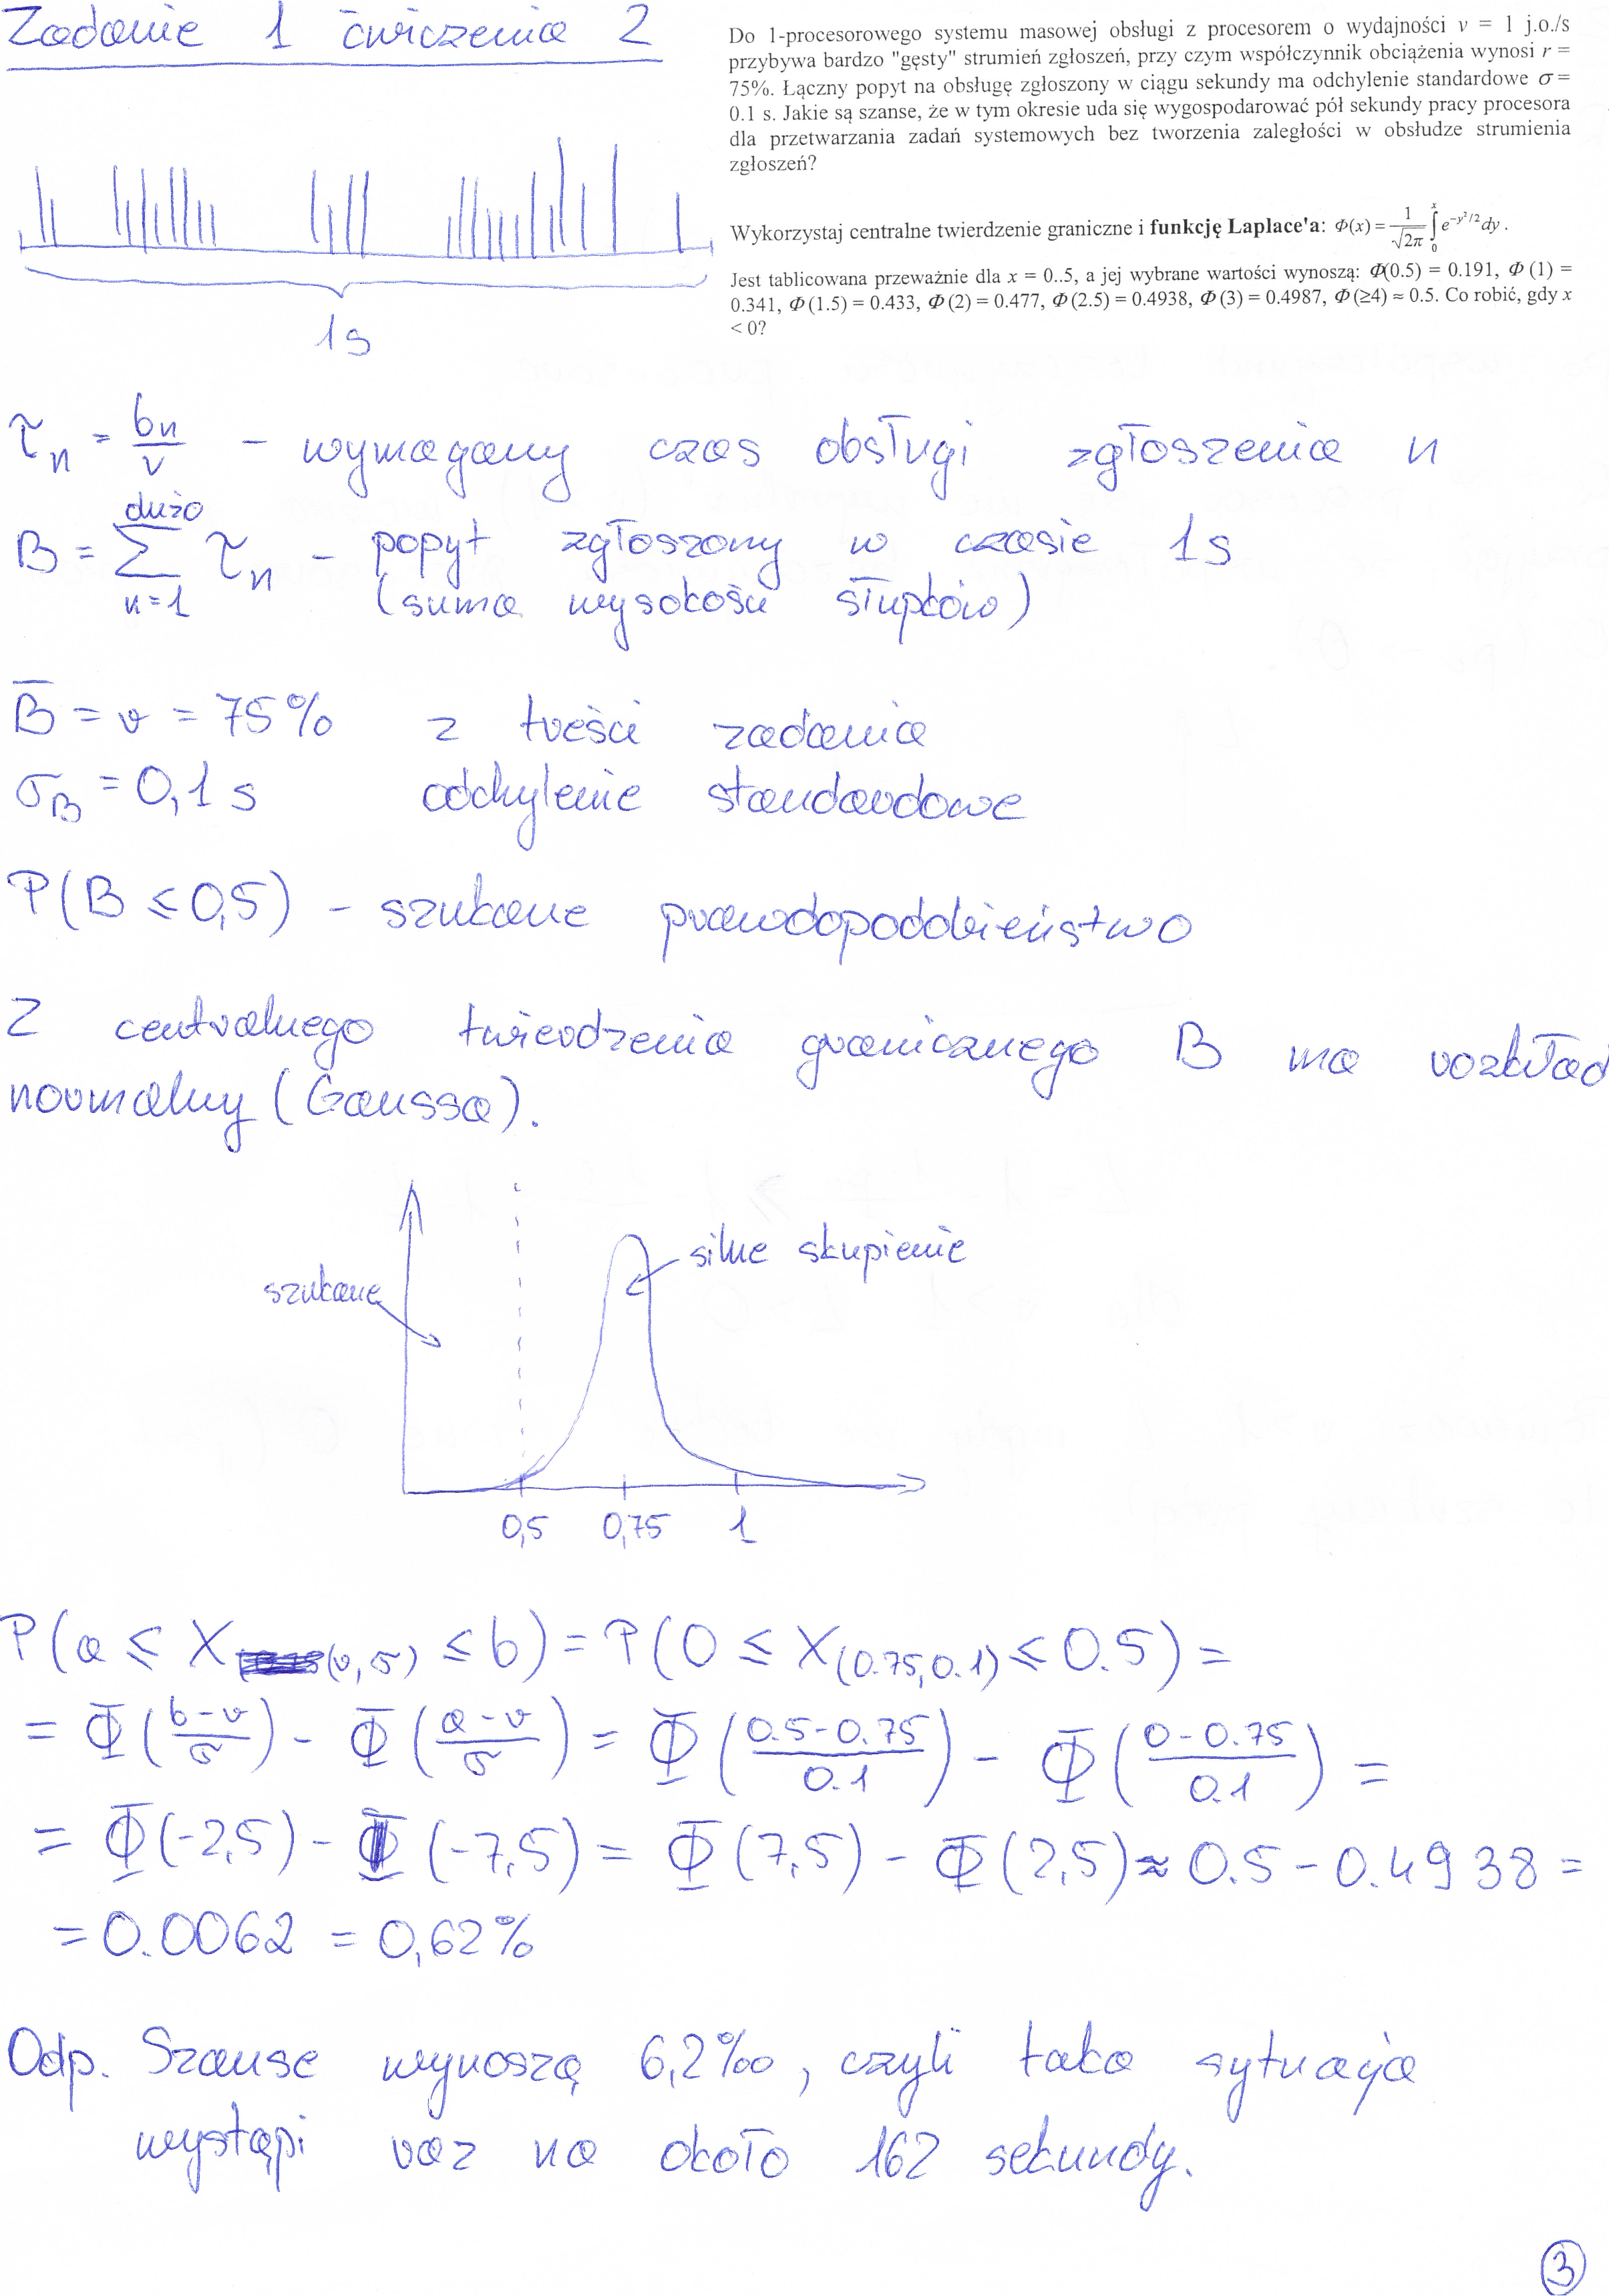 Zadanie 1 ćwiczenia 2
Do 1-procesorowego systemu masowej obsługi z procesorem o wydajności v = 1 j.o./s
przybywa bardzo "gęsty" strumień zgłoszeń, przy czym współczynnik obciążenia wynosi r =
75%. Łączny popyt na obsługę zgłoszony w ciągu sekundy ma odchylenie standardowe σ =
0.1 s. Jakie są szanse, że w tym okresie uda się wygospodarować pół sekundy pracy procesora
dla przetwarzania zadań systemowych bez tworzenia zaległości w obsłudze strumienia
zgłoszeń?
Wykorzystaj centralne twierdzenie graniczne i funkcję Laplace'a: Φ(x) = 1/√2π ∫₀ˣ e^(-y²/2) dy .
Jest tablicowana przeważnie dla x = 0..5, a jej wybrane wartości wynoszą: Φ(0.5) = 0.191, Φ (1) =
0.341, Φ (1.5) = 0.433, Φ (2) = 0.477, Φ (2.5) = 0.4938, Φ (3) = 0.4987, Φ (≥4) ≈ 0.5. Co robić, gdy x
< 0?
1s
τn = bn/v - wymagany czas obsługi zgłoszenia n
B = Σ(n=1, dużo) τn - popyt zgłoszony w czasie 1s
(suma wysokości słupków)
B̄ = r = 75% z treści zadania
σB = 0,1 s odchylenie standardowe
P(B ≤ 0,5) - szukane prawdopodobieństwo
Z centralnego twierdzenia granicznego B ma rozkład
normalny (Gaussa).
szukane
silne skupienie
0,5 0,75 1
P(a ≤ X(r,σ) ≤ b) = P(0 ≤ X(0.75,0.1) ≤ 0.5) =
= Φ((b-r)/σ) - Φ((a-r)/σ) = Φ((0.5-0.75)/0.1) - Φ((0-0.75)/0.1) =
= Φ(-2,5) - Φ(-7,5) = Φ(7,5) - Φ(2,5) ≈ 0.5 - 0.4938 =
= 0.0062 = 0,62%
Odp. Szanse wynoszą 6,2‰, czyli taka sytuacja
wystąpi raz na około 162 sekundy.
3